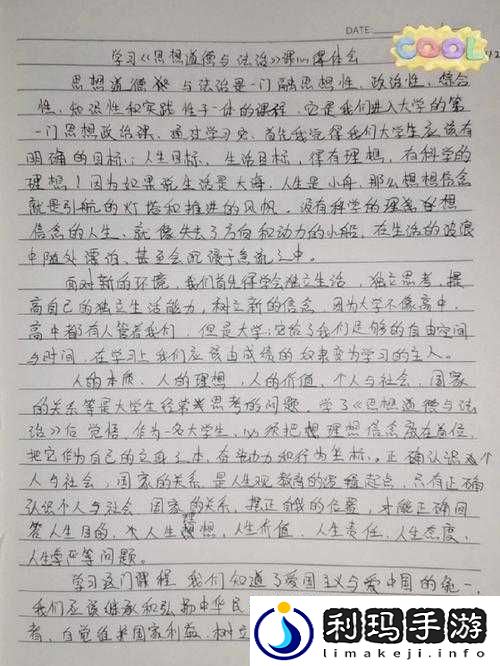 DATE:
COOL
学习《思想道德与法治》课心得体会
思想道德和与法治是一门融思想性、政治性、综合
性、知识性和实践性于一体的课程，它是我们进入大学的第
一门思想政治课。通过学习后，首先我觉得我们大学生应该有
明确的目标：人生目标、生活目标，得有理想，有科学的
理想！因为如果说生活是大海，人生是小舟，那么想想信念
就是引航的灯塔和推进的风帆。没有科学的理想
信念的人生，就像失去了方向和动力的小船，在生活的波浪
中随处漂泊，甚至会沉没于急流之中。
面对新的环境，我们首先得学会独立生活，独立思考，提
高自己的独立生活能力，树立新的信念，因为大学不像高中，
高中都有人管着我们，但是大学，它给了我们足够的自由空间
与时间，在学习上我们应该由成绩的奴隶变为学习的主人。
人的本质、人的理想，人的价值，个人与社会、国家
的关系等是大学生经常思考的问题。学了《思想道德与法
治》后觉悟，作为一名大学生，必须把想理想信念放在首位，
把它作为自己的立身之本，奋斗动力和行为坐标。正确认识个
人与社会，国家的关系，是人生观教育的逻辑起点，只有正确
认识个人与社会、国家的关系，摆正自我的位置，才能正确回
答人生目的、人生理想、人生价值、人生责任、人生态度、
人生等问题。
学习这门课程，我们知道了爱国主义与爱中国的统一，
我们应该继承和弘扬中华民
者，自觉维护国家利益，树立
利玛手游
limakeji.info